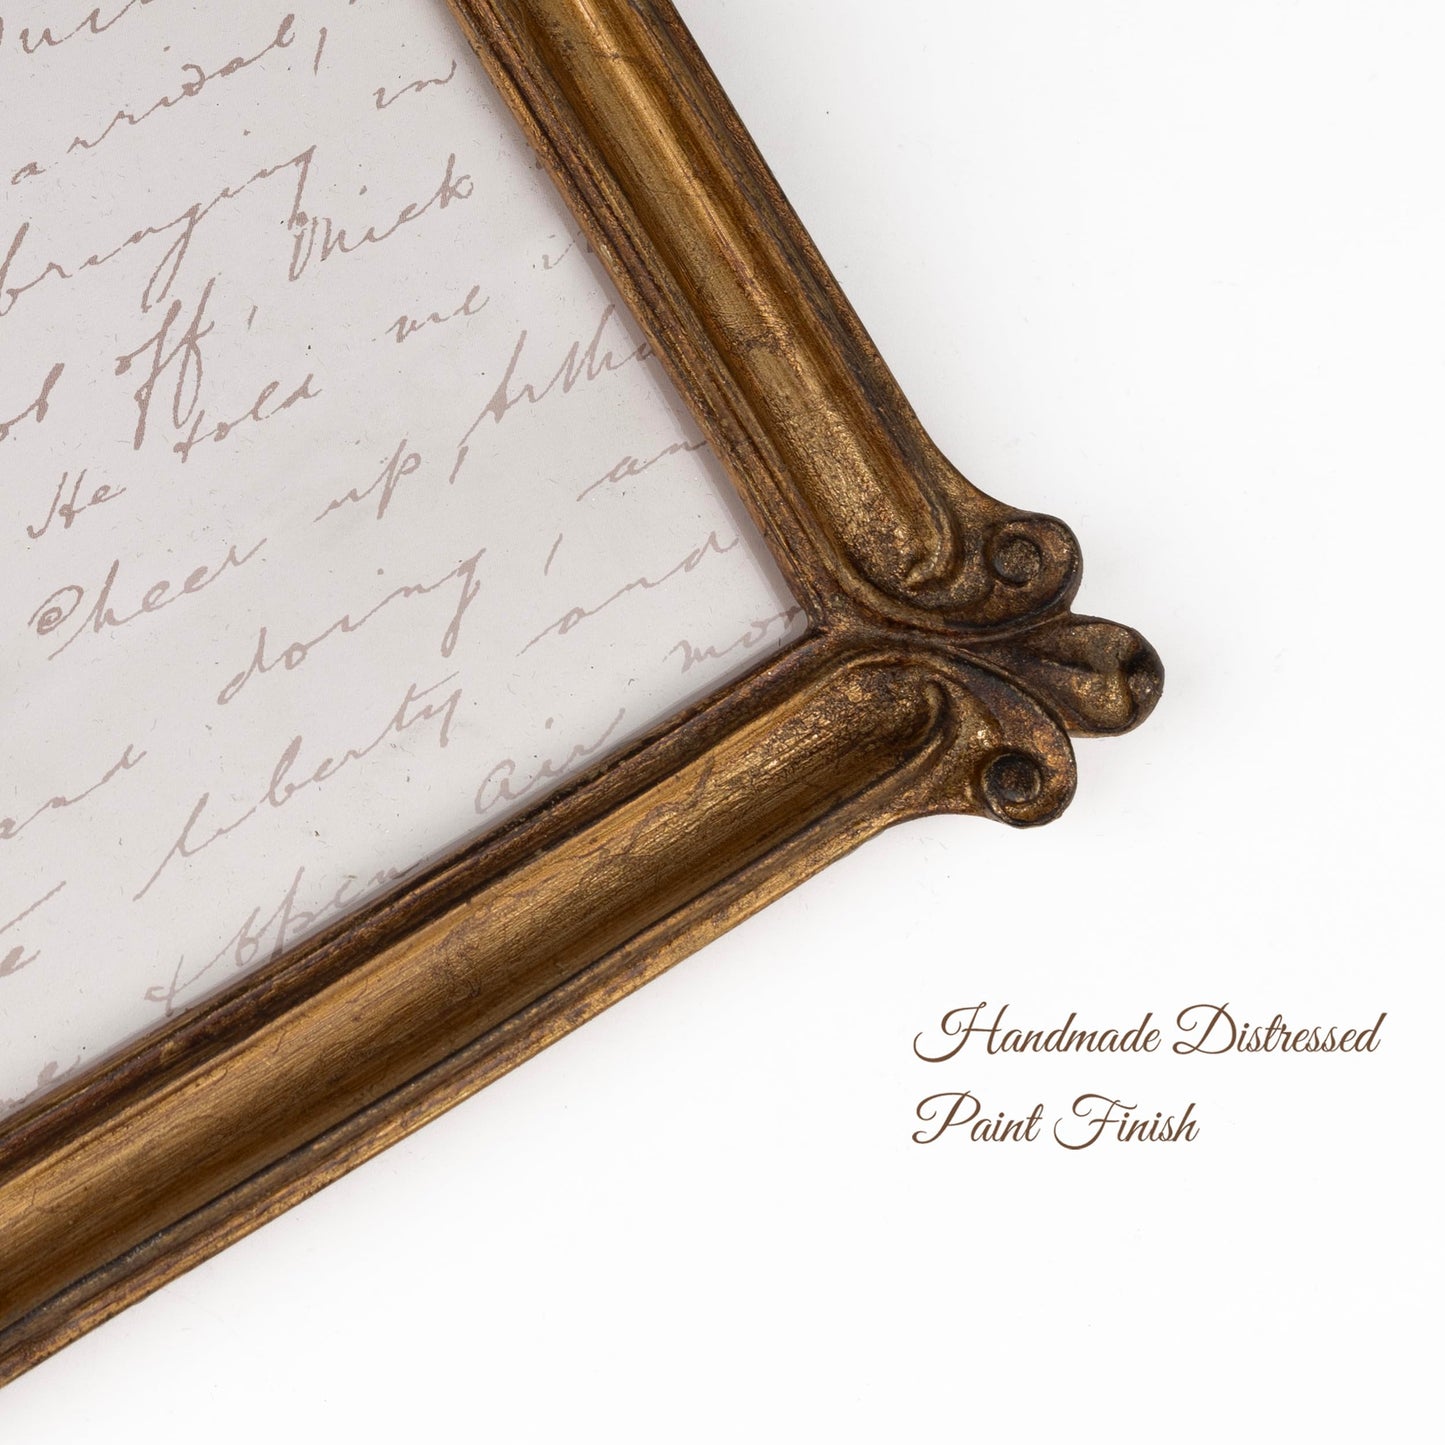 arrival,
bringing in
off, Mick
He told me
Cheer up, Arthu
doing, an
liberty and mo
open air
Handmade Distressed
Paint Finish